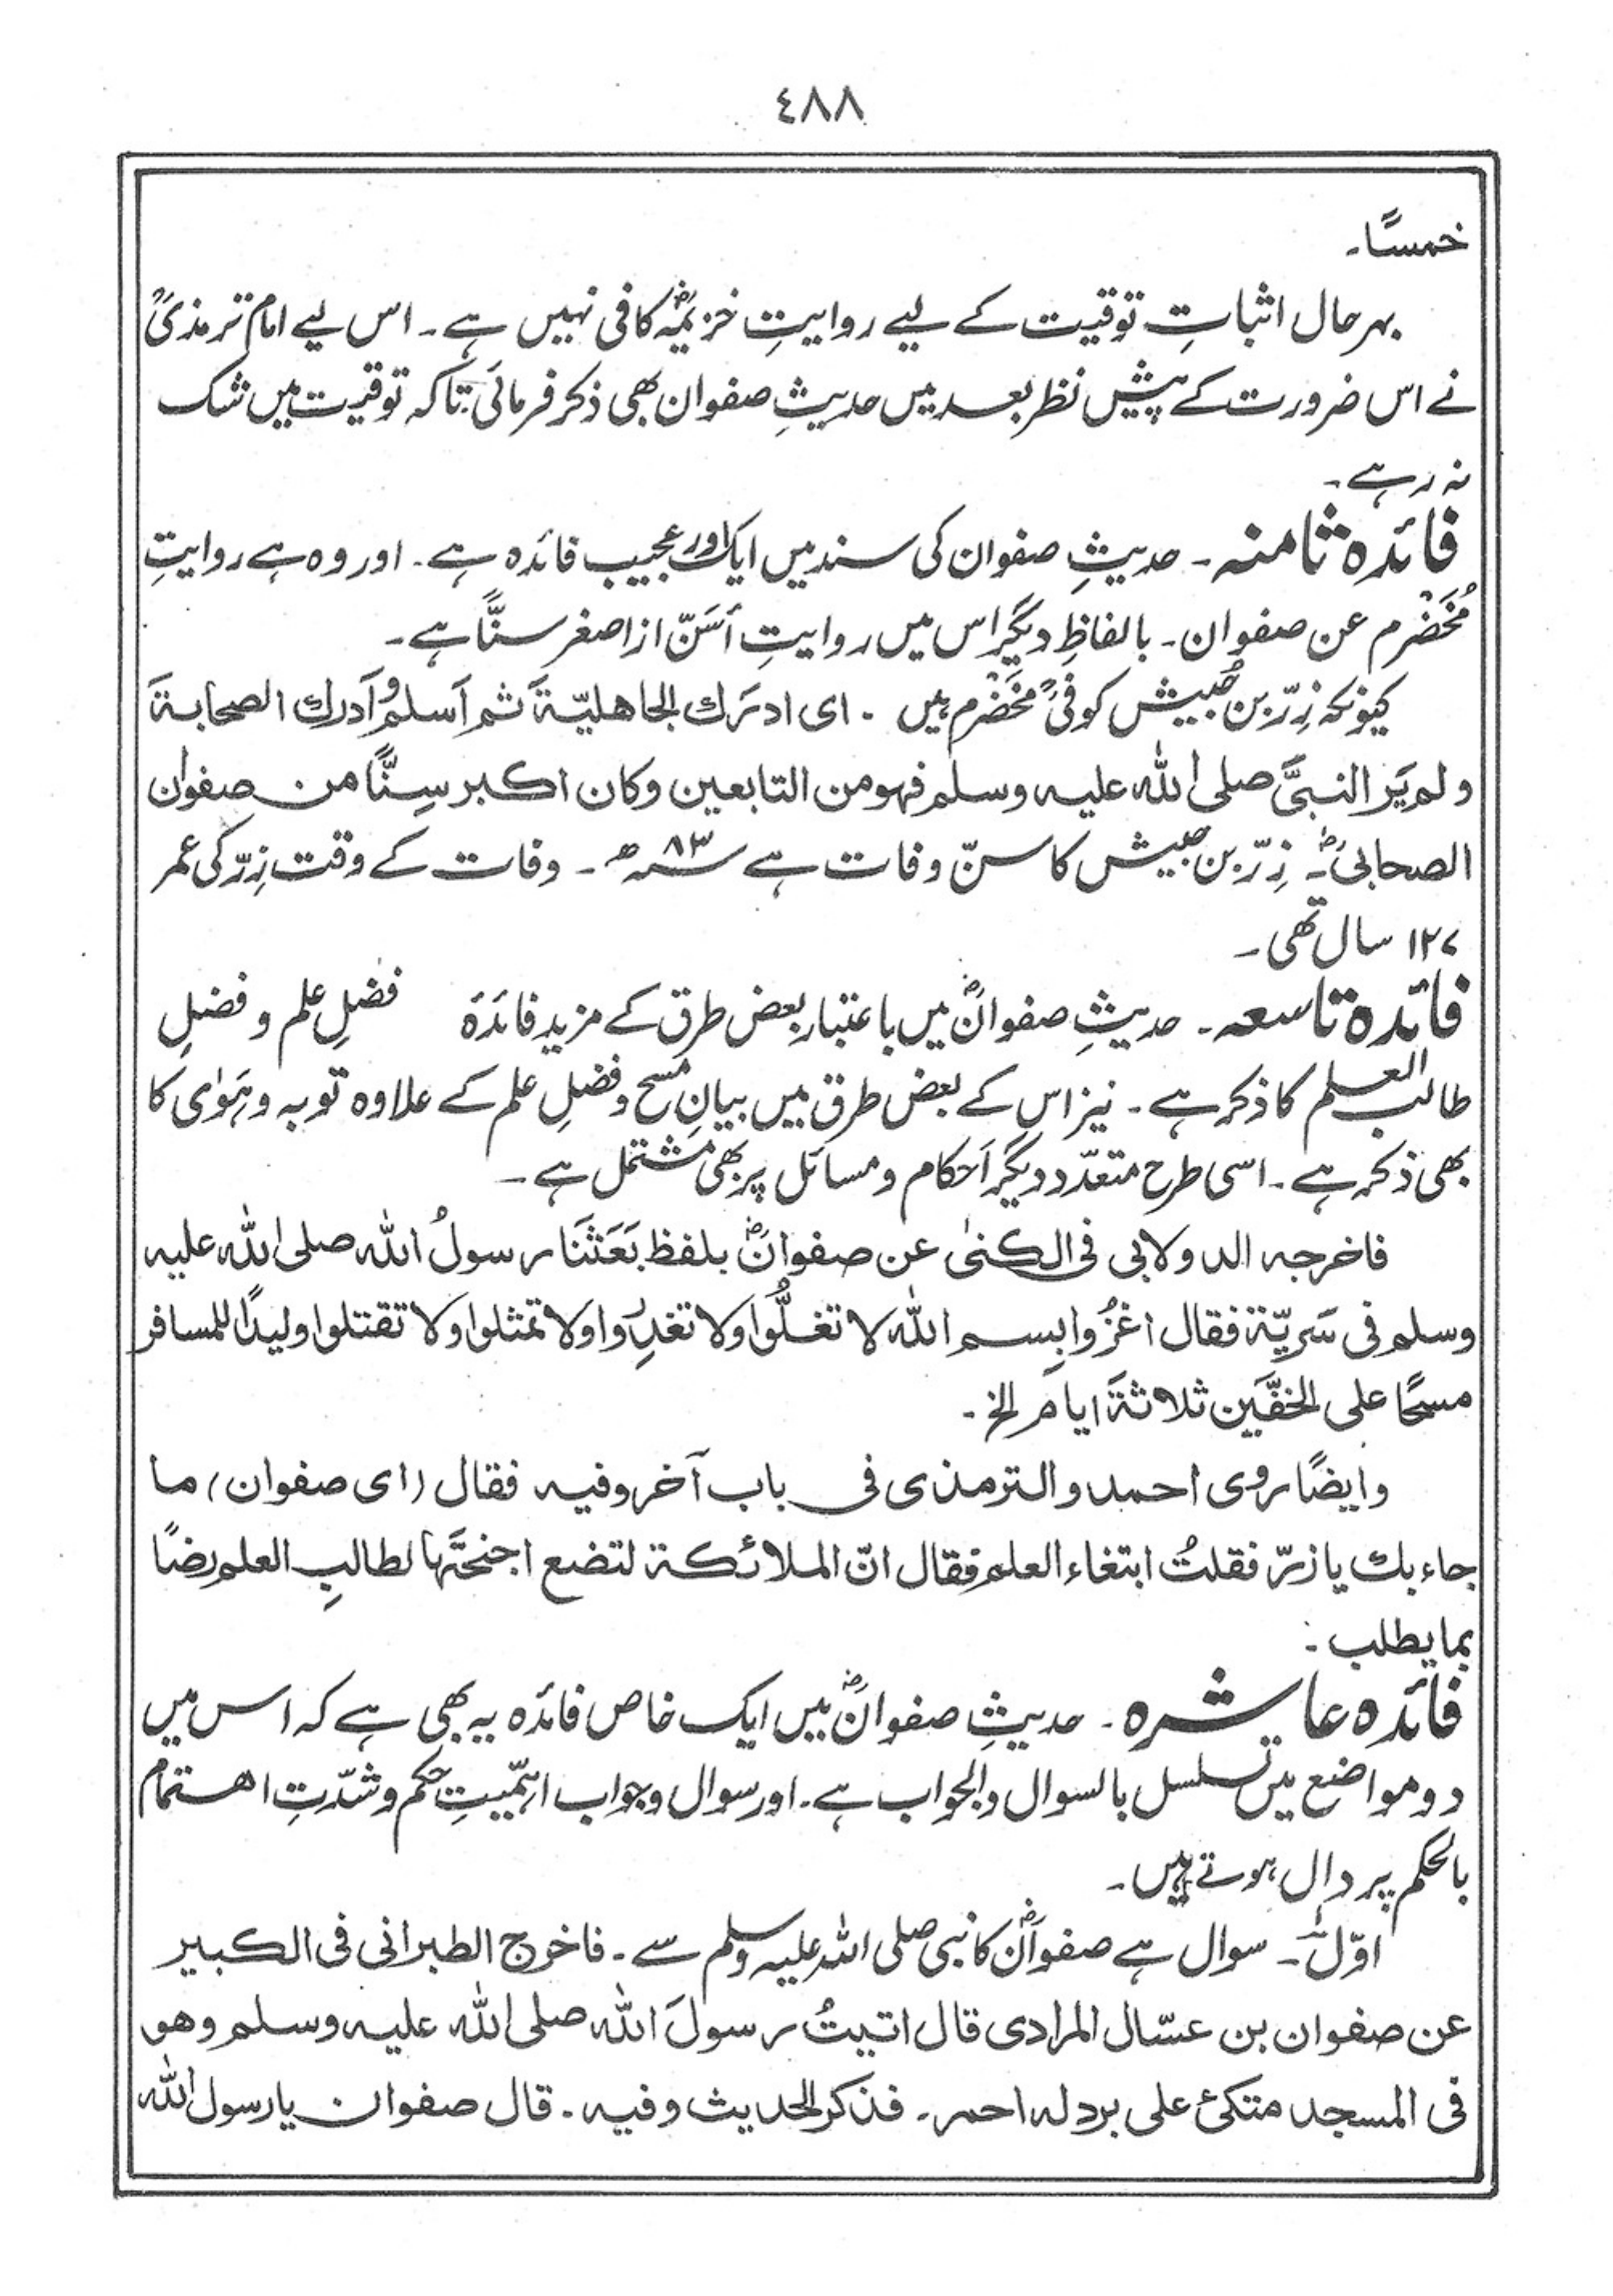 ٤٨٨
خمسًا۔
بہرحال اثباتِ توقیت کے لیے روایتِ خزیمہؓ کافی نہیں ہے۔ اس لیے امام ترمذیؒ
نے اس ضرورت کے پیشِ نظر بعد میں حدیثِ صفوان بھی ذکر فرمائی تاکہ توقیت میں شک
نہ رہے۔
فائدہ ثامنہ۔ حدیثِ صفوان کی سند میں ایک اور عجیب فائدہ ہے۔ اور وہ ہے روایتِ
مُخَضْرَم عن صفوان۔ بالفاظِ دیگر اس میں روایتِ أَسَنّ از اصغر سنًّا ہے۔
کیونکہ زِرّ بن حُبیش کوفیؒ مُخَضْرَم ہیں۔ ای ادرك الجاهليّةَ ثم اَسلم و اَدرك الصحابةَ
ولم يَرَ النبيَّ صلى الله عليه وسلم فهو من التابعين وكان اكبر سِنًّا من صفوان
الصحابیؓ۔ زِرّ بن حبیش کا سنّ وفات ہے ۸۳ ؁ھ۔ وفات کے وقت زِرّ کی عمر
۱۲۷ سال تھی۔
فائدہ تاسعہ۔ حدیثِ صفوانؓ میں باعتبار بعض طرق کے مزید فائدہ فضلِ علم و فضلِ
طالب العلم کا ذکر ہے۔ نیز اس کے بعض طرق میں بیانِ مسح و فضلِ علم کے علاوہ توبہ و ہَوٰی کا
بھی ذکر ہے۔ اسی طرح متعدّد دیگر اَحکام و مسائل پر بھی مشتمل ہے۔
فاخرجه الدولابی فی الكنىٰ عن صفوانؓ بلفظ بَعَثَنَا رسولُ الله صلى الله عليه
وسلم فی سَرِيّة فقال اغزُوا بِسم الله لا تغلُّوا ولا تغدِروا ولا تمثلوا ولا تقتلوا وليدًا للمسافر
مسحًا على الخفَّين ثلاثةَ ايام الخ۔
وايضًا روى احمد والترمذی فی باب آخر وفيه فقال (ای صفوان) ما
جاء بك يا زرّ فقلتُ ابتغاء العلم فقال انّ الملائكة لتضع اجنحتَها لطالبِ العلم رضًا
بما يطلب۔
فائدہ عاشرہ۔ حدیثِ صفوانؓ میں ایک خاص فائدہ یہ بھی ہے کہ اس میں
دو مواضع میں تسلسل بالسوال والجواب ہے۔ اور سوال و جواب اہمّیتِ حکم و شدّتِ اهتمام
بالحکم پر دال ہوتے ہیں۔
اوّل۔ سوال ہے صفوانؓ کا نبی صلی اللہ علیہ وسلم سے۔ فاخرج الطبرانی فی الكبير
عن صفوان بن عسّال المرادی قال اتيتُ رسولَ الله صلى الله عليه وسلم وهو
فی المسجد متكئ على برد له احمر۔ فذكر الحديث وفيه۔ قال صفوان يا رسول الله